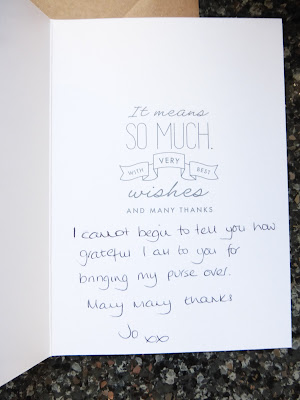 It means
SO MUCH.
WITH VERY BEST
wishes
AND MANY THANKS
I cannot begin to tell you how
grateful I am to you for
bringing my purse over.
Many Many thanks
Jo xxx